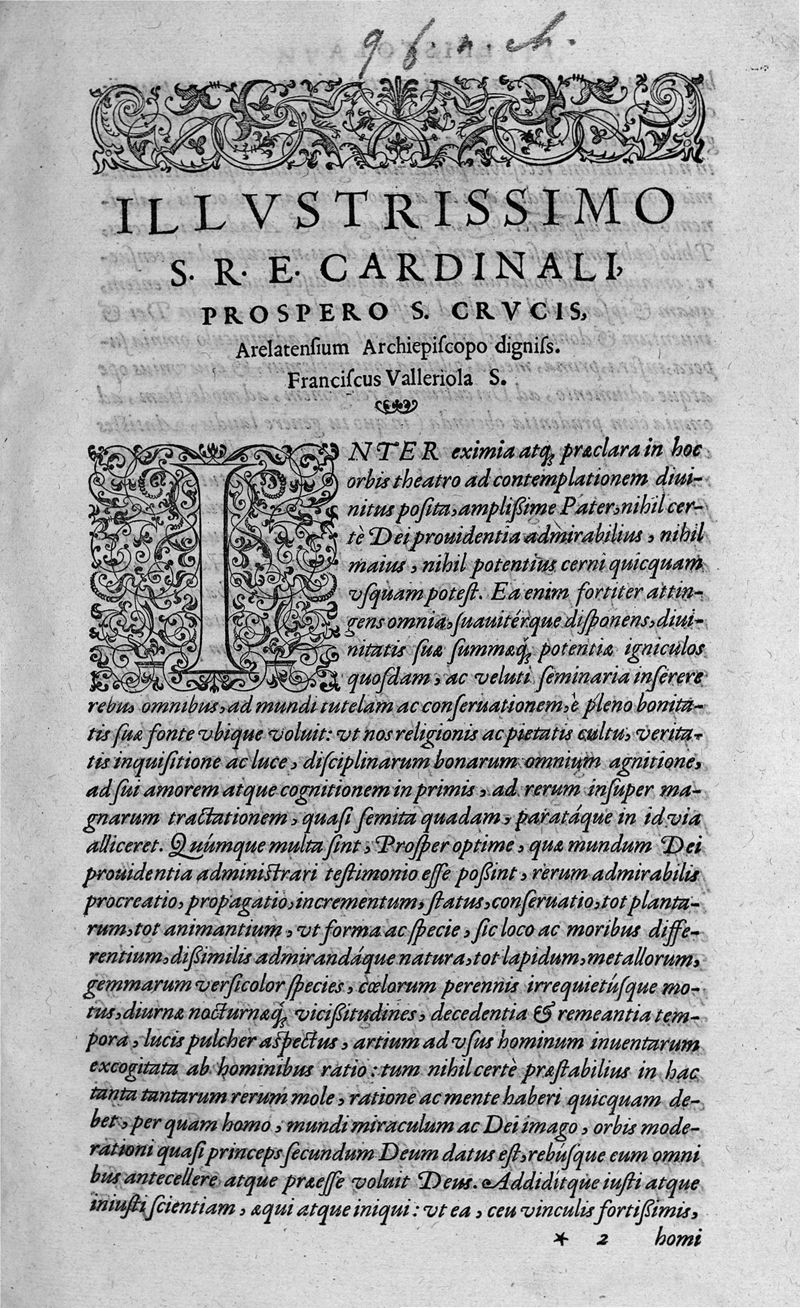 ILLVSTRISSIMO
S. R. E. CARDINALI,
PROSPERO S. CRVCIS,
Arelatenſium Archiepiſcopo digniſs.
Franciſcus Valleriola S.
INTER eximia atq; præclara in hoc
orbis theatro ad contemplationem diui-
nitus poſita, ampliſſime Pater, nihil cer-
tè Dei prouidentia admirabilius, nihil
maius, nihil potentius cerni quicquam
vſquam poteſt. Ea enim fortiter attin-
gens omnia, ſuauitérque diſponens, diui-
nitatis ſuæ ſummæq; potentiæ igniculos
quoſdam, ac veluti ſeminaria inſerere
rebus omnibus, ad mundi tutelam ac conſeruationem, è pleno bonita-
tis ſuæ fonte vbique voluit: vt nos religionis ac pietatis cultu, verita-
tis inquiſitione ac luce, diſciplinarum bonarum omnium agnitione,
ad ſui amorem atque cognitionem in primis, ad rerum inſuper ma-
gnarum tractationem, quaſi ſemita quadam, paratáque in id via
alliceret. Quúmque multa ſint, Proſper optime, quæ mundum Dei
prouidentia adminiſtrari teſtimonio eſſe poſſint, rerum admirabilis
procreatio, propagatio, incrementum, ſtatus, conſeruatio, tot planta-
rum, tot animantium, vt forma ac ſpecie, ſic loco ac moribus diffe-
rentium, diſſimilis admirandáque natura, tot lapidum, metallorum,
gemmarum verſicolor ſpecies, cœlorum perennis irrequietúſque mo-
tus, diurnæ nocturnæq; viciſſitudines, decedentia & remeantia tem-
pora, lucis pulcher aſpectus, artium ad vſus hominum inuentarum
excogitata ab hominibus ratio: tum nihil certè præſtabilius in hac
tanta tantarum rerum mole, ratione ac mente haberi quicquam de-
bet, per quam homo, mundi miraculum ac Dei imago, orbis mode-
rationi quaſi princeps ſecundum Deum datus eſt, rebúſque eum omni
bus antecellere atque præeſſe voluit Deus. Addidítque iuſti atque
iniuſti ſcientiam, æqui atque iniqui: vt ea, ceu vinculis fortiſſimis,
* 2 homi